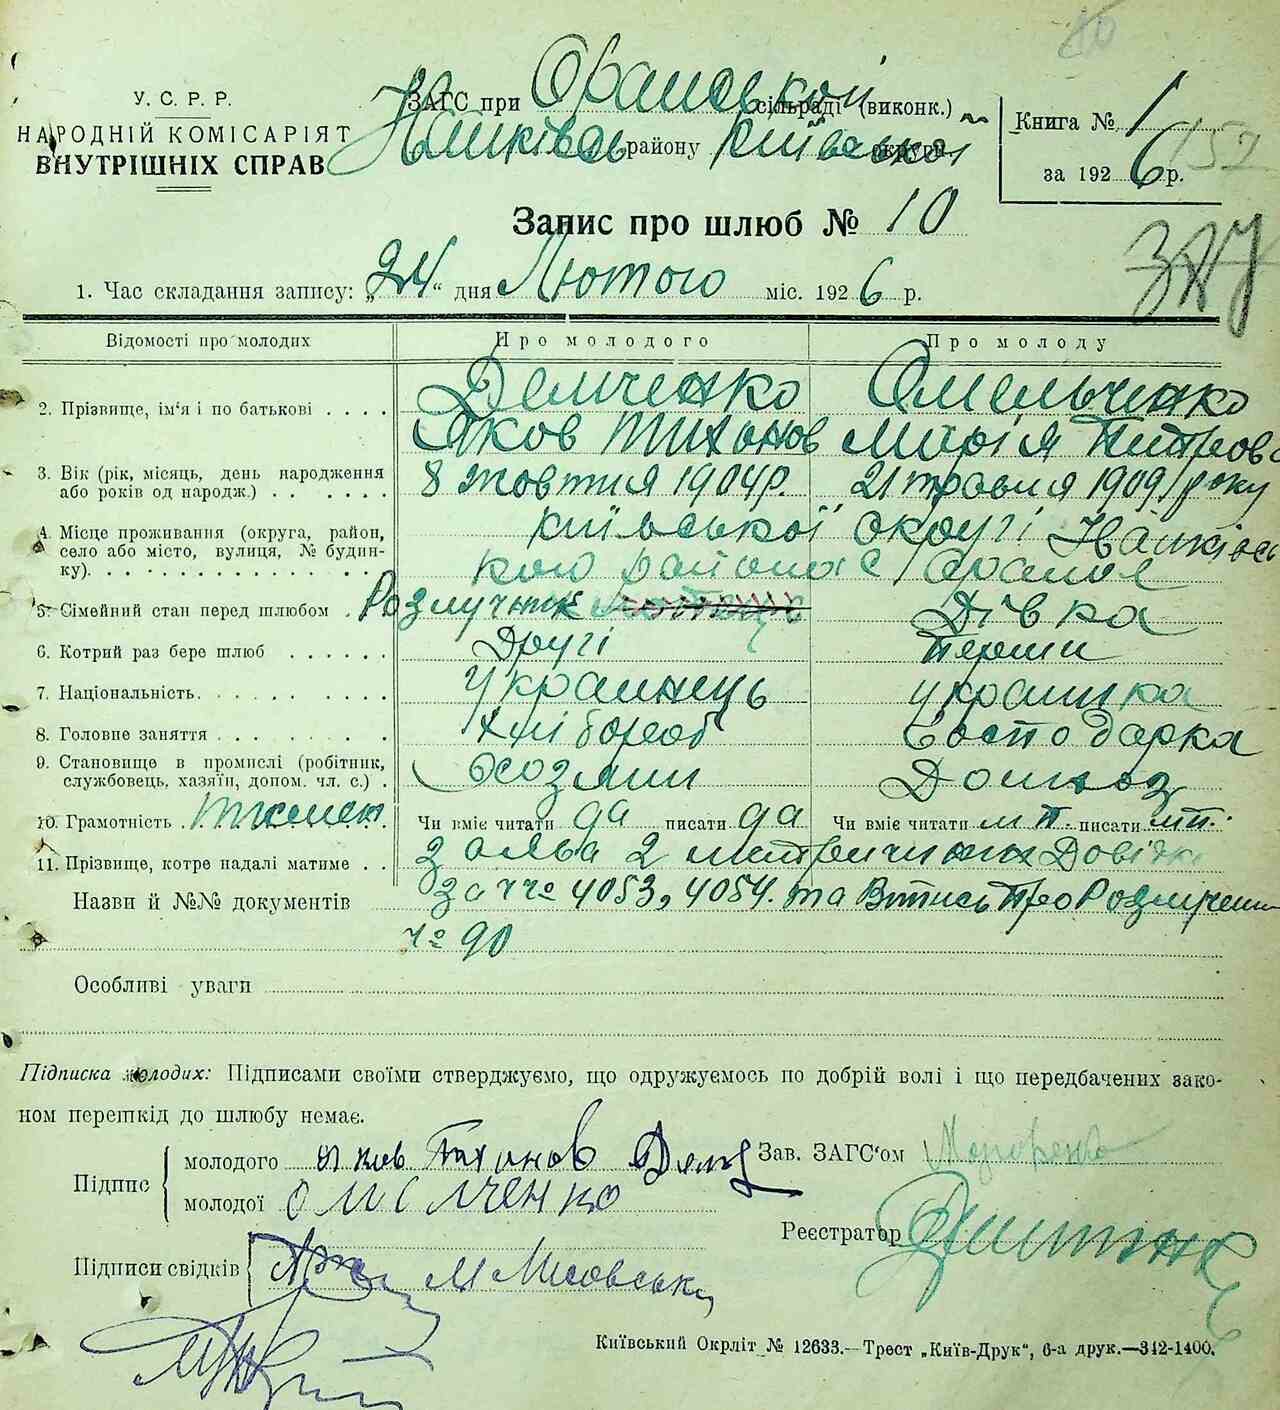 У. С. Р. Р.
НАРОДНІЙ КОМІСАРІЯТ
ВНУТРІШНІХ СПРАВ
ЗАГС при Оранській сільраді (виконк.)
району Київської округи
Книга № 1
за 1926 р.
152
Запис про шлюб № 10
1. Час складання запису: „24“ дня Лютого міс. 1926 р.
Відомості про молодих Про молодого Про молоду
2. Прізвище, ім'я і по батькові . . . . Демченко Омельченко
Яков Тихонов Марія Питровна
3. Вік (рік, місяць, день народження або років од народж.) . . . . . . 8 жовтня 1904 р. 21 травня 1909 року
4. Місце проживання (округа, район, село або місто, вулиця, № будинку). Київської округі
кого района с Оране
5. Сімейний стан перед шлюбом . Розлучник Дівка
6. Котрий раз бере шлюб . . . . . . Другі Перши
7. Національність. . . . . . . . . . Українець українка
8. Головне заняття . . . . . . . . Хлібороб Господарка
9. Становище в промислі (робітник, службовець, хазяїн, допом. чл. с.) . Хозяин
10. Грамотність Чи вміє читати да писати да Чи вміє читати писати
11. Прізвище, котре надалі матиме . .
Назви й №№ документів за ч.ч. 4053, 4054. та Витись про Розлучення
ч. 90
Особливі уваги
Підписка молодих: Підписами своїми стверджуємо, що одружуємось по добрій волі і що передбачених зако-
ном перешкід до шлюбу немає.
Підпис
молодого Яков Тихонов Дем
молодої Омелченко
Зав. ЗАГС'ом
Реєстратор
Підписи свідків
Київський Окрліт № 12633.—Трест „Київ-Друк“, 6-а друк.—342-1400.